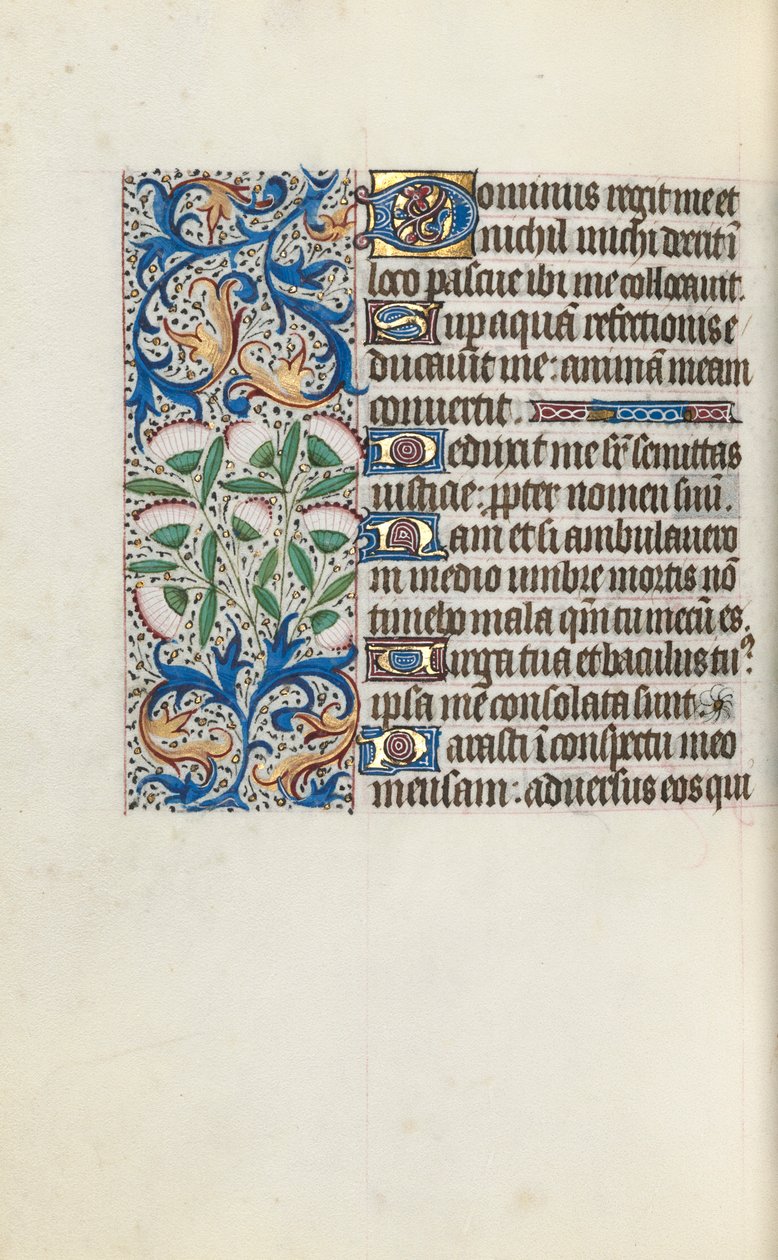 Dominus regit me et
nichil michi deerit ĩ
loco pascue ibi me collocauit.
Sup aquã refectionis e
ducauit me: animã meam
conuertit
Deduxit me sr̃ semittas
iusticie: ꝓpter nomen suũ.
Nam et si ambulauero
in medio umbre mortis nõ
timebo mala qm̃ tu mecũ es.
Uirga tua et baculus tuꝰ:
ipsa me consolata sunt
Parasti ĩ conspectu meo
mensam: aduersus eos qui